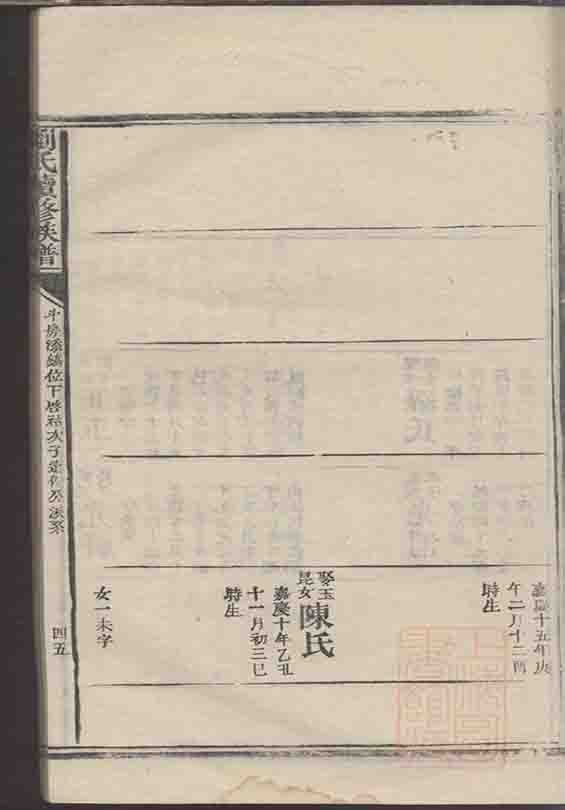 嘉慶十五年庚
午二月十二酉
時生
娶玉
昆女
陳氏
嘉慶十年乙丑
十一月初三巳
時生
女一未字
劉氏續修族譜
位下啓祜次子
四五